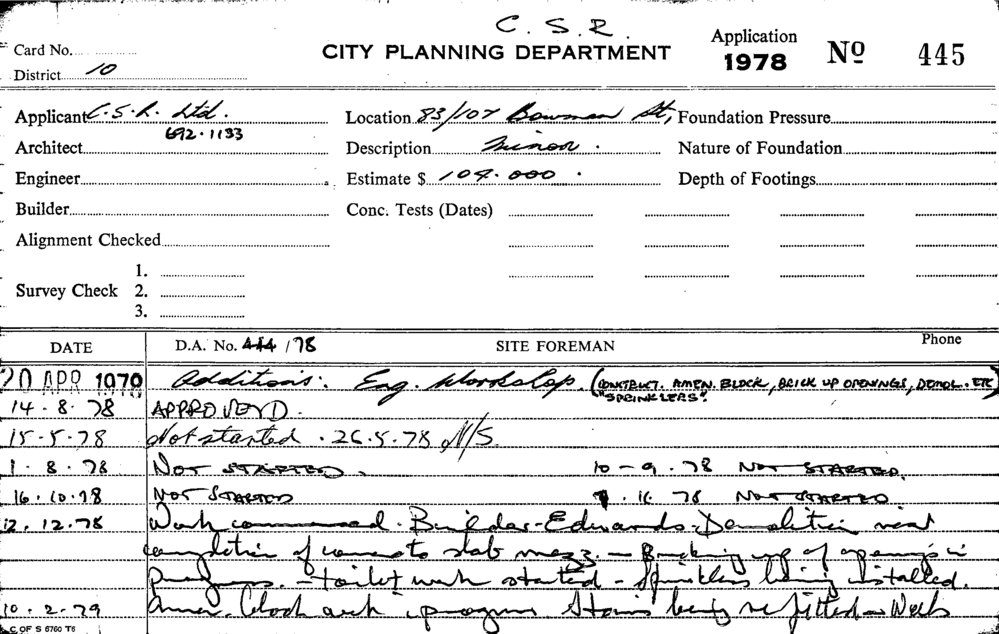 C. S. R.
Card No.
CITY PLANNING DEPARTMENT
Application 1978 No 445
District 10
Applicant C.S.R. Ltd. Location 83/107 Bowman St, Foundation Pressure
692.1133
Architect Description Minor. Nature of Foundation
Engineer Estimate $ 109.000. Depth of Footings
Builder Conc. Tests (Dates)
Alignment Checked
1.
Survey Check 2.
3.
DATE D.A. No. 444/78 SITE FOREMAN Phone
20 APR 1978 Additions: Eng. Workshop. (CONSTRUCT. AMEN. BLOCK, BRICK UP OPENINGS, DEMOL. ETC)
"SPRINKLERS".
14.8.78 APPROVED.
15-5-78 Not started. 26.5.78 N/S
1.8.78 NOT STARTED. 10-9.78 NOT STARTED.
16.10.78 NOT STARTED 9.11.78 NOT STARTED
12.12.78 Work commenced. Builder - Edwards. Demolition near
completion of concrete slab mezz. - Bricking up of openings in
progress. - toilet work started - Sprinklers being installed.
10.2.79 Amen. block work in progress Stairs being refitted - Work
C OF S 6760 T6